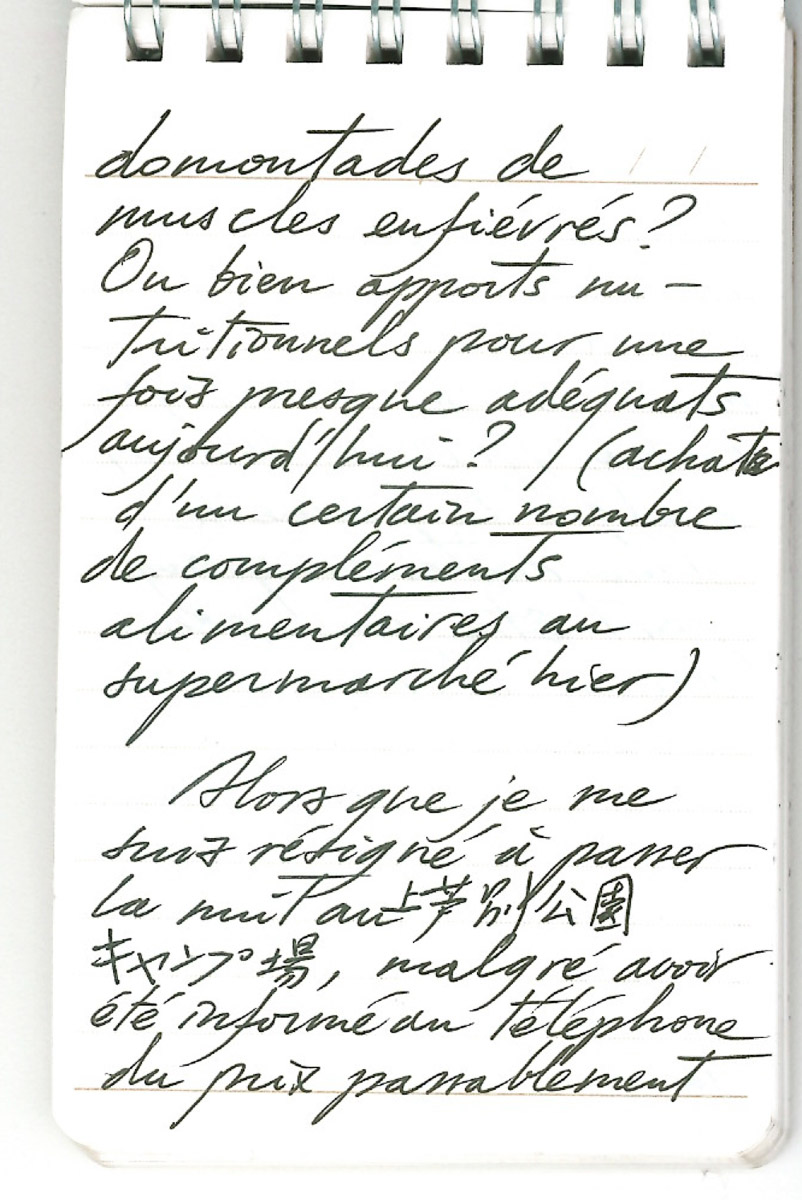 domontades de
muscles enfiévrés?
Ou bien apports nu-
tritionnels pour une
fois presque adéquats
aujourd'hui? (achats
d'un certain nombre
de compléments
alimentaires au
supermarché hier)
Alors que je me
suis résigné à passer
la nuit au 上芦別公園
キャンプ場, malgré avoir
été informé au téléphone
du prix passablement